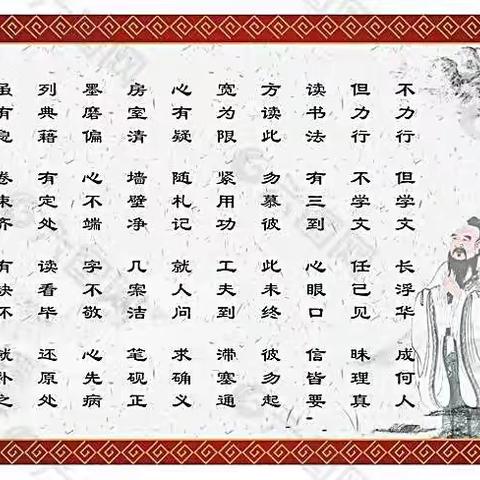 不力行 但学文 长浮华 成何人
但力行 不学文 任己见 昧理真
读书法 有三到 心眼口 信皆要
方读此 勿慕彼 此未终 彼勿起
宽为限 紧用功 工夫到 滞塞通
心有疑 随札记 就人问 求确义
房室清 墙壁净 几案洁 笔砚正
墨磨偏 心不端 字不敬 心先病
列典籍 有定处 读看毕 还原处
虽有急 卷束齐 有缺坏 就补之